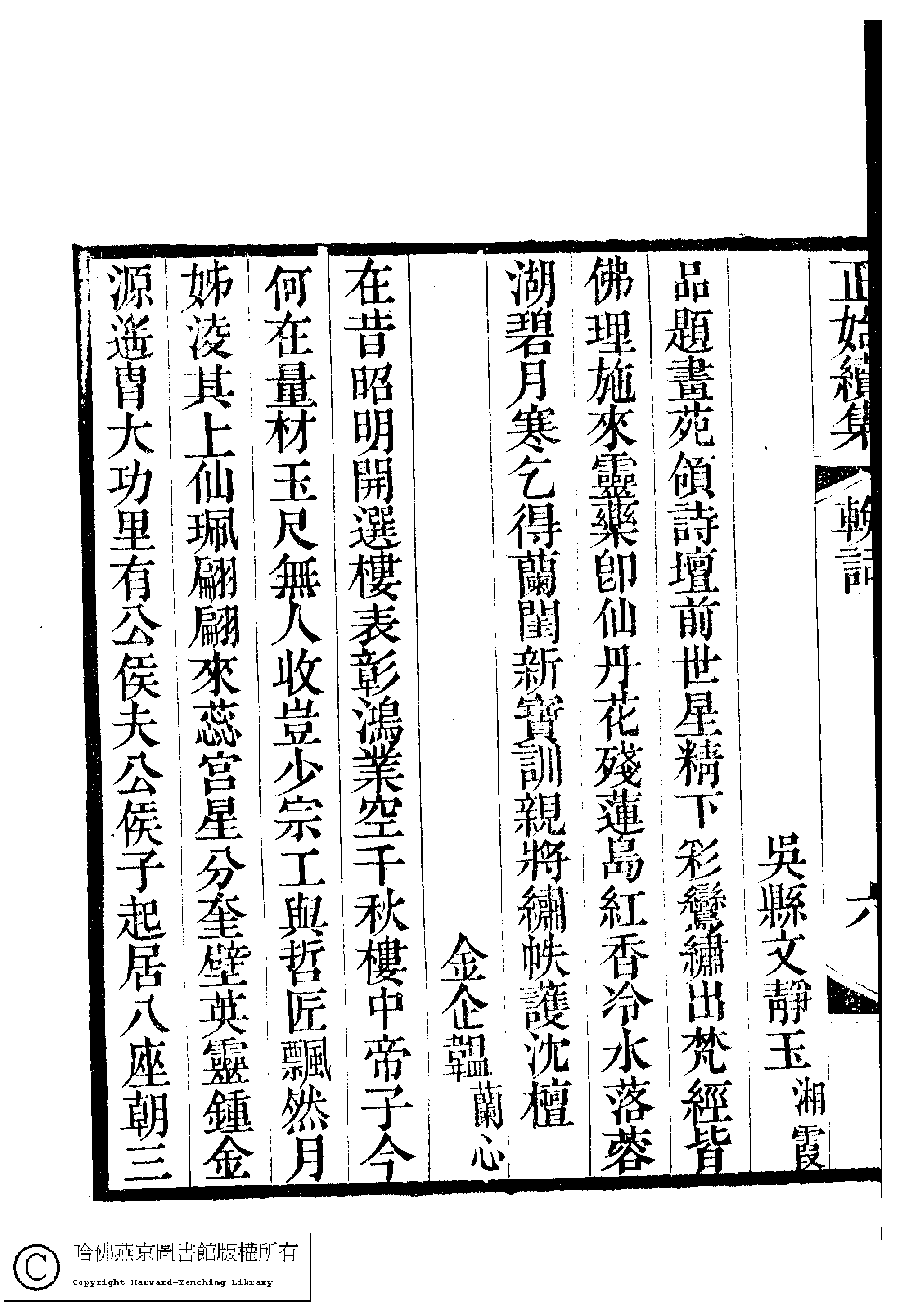 正始續集 輓詞 六
吳縣文靜玉湘霞
品題畫苑領詩壇前世星精下彩鸞繡出梵經皆
佛理施來靈藥卽仙丹花殘蓮島紅香冷水落蓉
湖碧月寒乞得蘭閨新寶訓親將繡帙護沈檀
金企韞蘭心
在昔昭明開選樓表彰鴻業空千秋樓中帝子今
何在量材玉尺無人收豈少宗工與哲匠飄然月
姊淩其上仙珮翩翩來蕊宮星分奎壁英靈鍾金
源遙胄大功里有公侯夫公侯子起居八座朝三
哈佛燕京圖書館版權所有
Copyright Harvard-Yenching Library